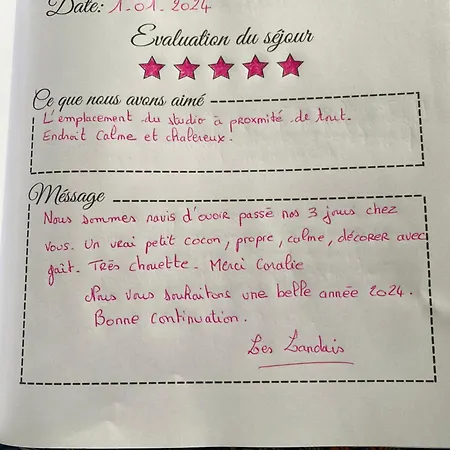 Date: 1.01.2024
Evaluation du séjour
Ce que nous avons aimé
L'emplacement du studio à proxmité de tout.
Endroit calme et chaleureux.
Méssage
Nous sommes ravis d'avoir passé nos 3 jours chez
vous. Un vrai petit cocon, propre, calme, décorer avec
goût. Très chouette. Merci Coralie
Nous vous souhaitons une belle année 2024.
Bonne continuation.
Les Landais